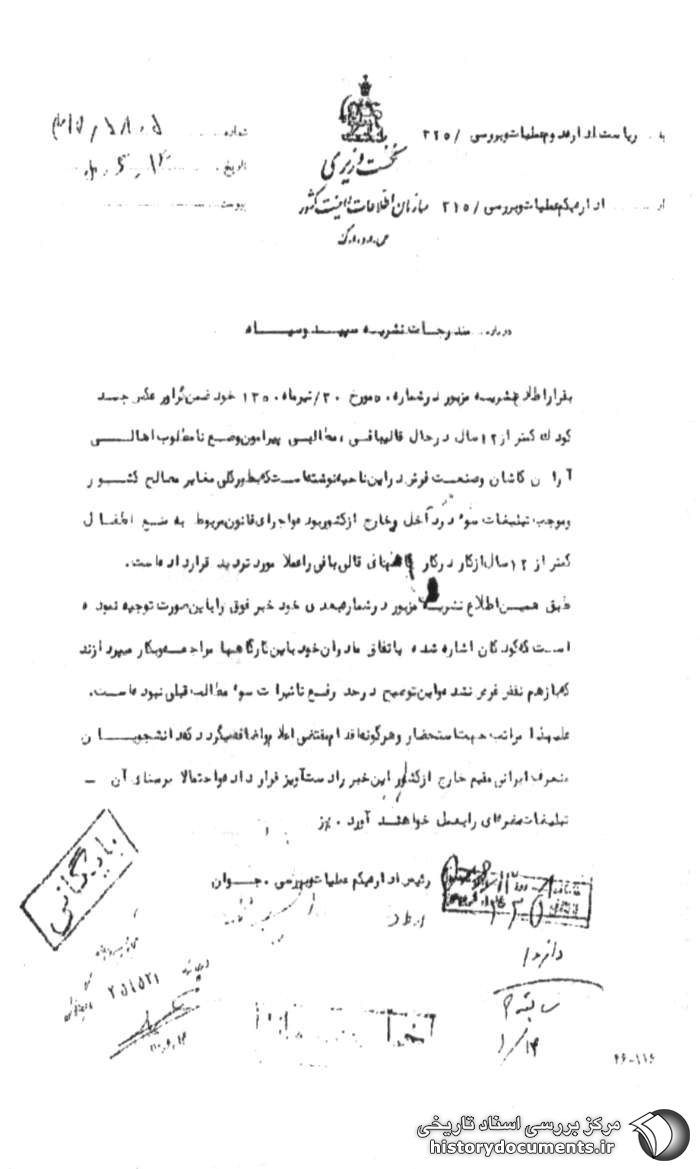 به ریاست اداره دوم عملیات و بررسی / ۳۲۵
شماره
نخست وزیری
تاریخ
از اداره یکم عملیات و بررسی / ۳۱۵
سازمان اطلاعات و امنیت کشور
پیوست
س.ا.و.ا.ک
درباره مندرجات نشریه سپید و سیاه
بقرار اطلاع نشریه مزبور در شماره ۵۰ مورخ ۳۰/تیرماه ۱۳۵۰ خود ضمن گراور عکس چند
کودک کمتر از ۱۲ سال در حال قالیبافی ، مطالبی پیرامون وضع نامطلوب اهالی
آران کاشان و صنعت فرش در این ناحیه نوشته است که بطور کلی مغایر مصالح کشور
و موجب تبلیغات سوء در داخل و خارج از کشور بوده و اجرای قانون مربوط به منع اطفال
کمتر از ۱۲ سال از کار در کارگاههای قالی بافی را عملا مورد تردید قرار داده است.
طبق همین اطلاع نشریه مزبور در شماره بعدی خود خبر فوق را باین صورت توجیه نموده
است که کودکان اشاره شده باتفاق مادران خود باین کارگاهها مراجعه و بکار میپردازند
که بازهم نقض غرض شده و این توضیح در حد رفع تاثیرات سوء مطالب قبلی نبوده است.
علیهذا مراتب جهت استحضار و هرگونه اقدام مقتضی اعلام و اضافه میگردد که دانشجویان
منحرف ایرانی مقیم خارج از کشور این خبر را دستآویز قرار داده و احتمالا بر مبنای آن -
تبلیغات مضره ای را بعمل خواهند آورد .
رئیس اداره یکم عملیات و بررسی . جوان
بایگانی
۲۵۱۵۲۱
سابقه
۴۶-۱۱۶
مرکز بررسی اسناد تاریخی
historydocuments.ir